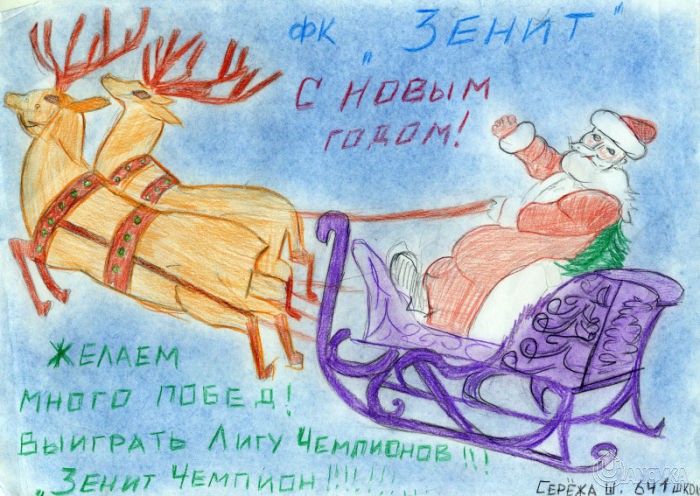 ФК „ЗЕНИТ"
С НОВЫМ
ГОДОМ!
ЖЕЛАЕМ
МНОГО ПОБЕД!
ВЫИГРАТЬ ЛИГУ ЧЕМПИОНОВ!!!
„ЗЕНИТ ЧЕМПИОН!!!!!!.....
СЕРЁЖА Ш. 641 ШКОЛ